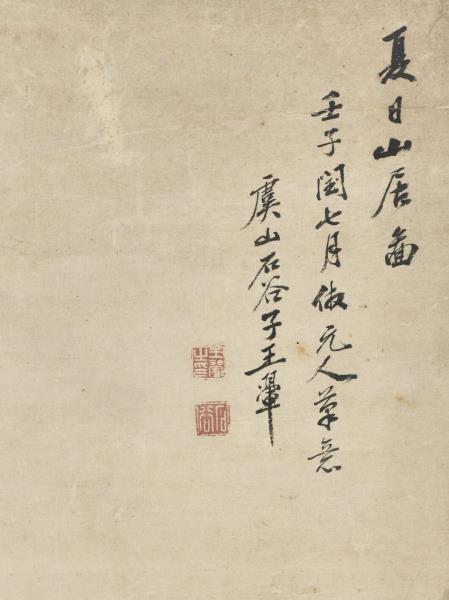 夏日山居圖
壬子閏七月倣元人筆意
虞山石谷子王翬
王翬之印
石谷